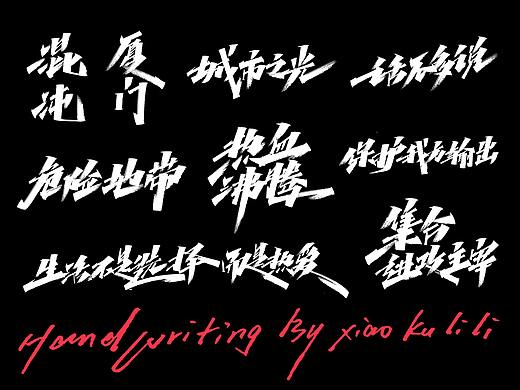 混 厦
沌 门
城市之光
话不多说
危险地带
热血
沸腾
保护我方输出
生活不是选择 而是热爱
集合
进攻主宰
Handwriting By xiao ku li li